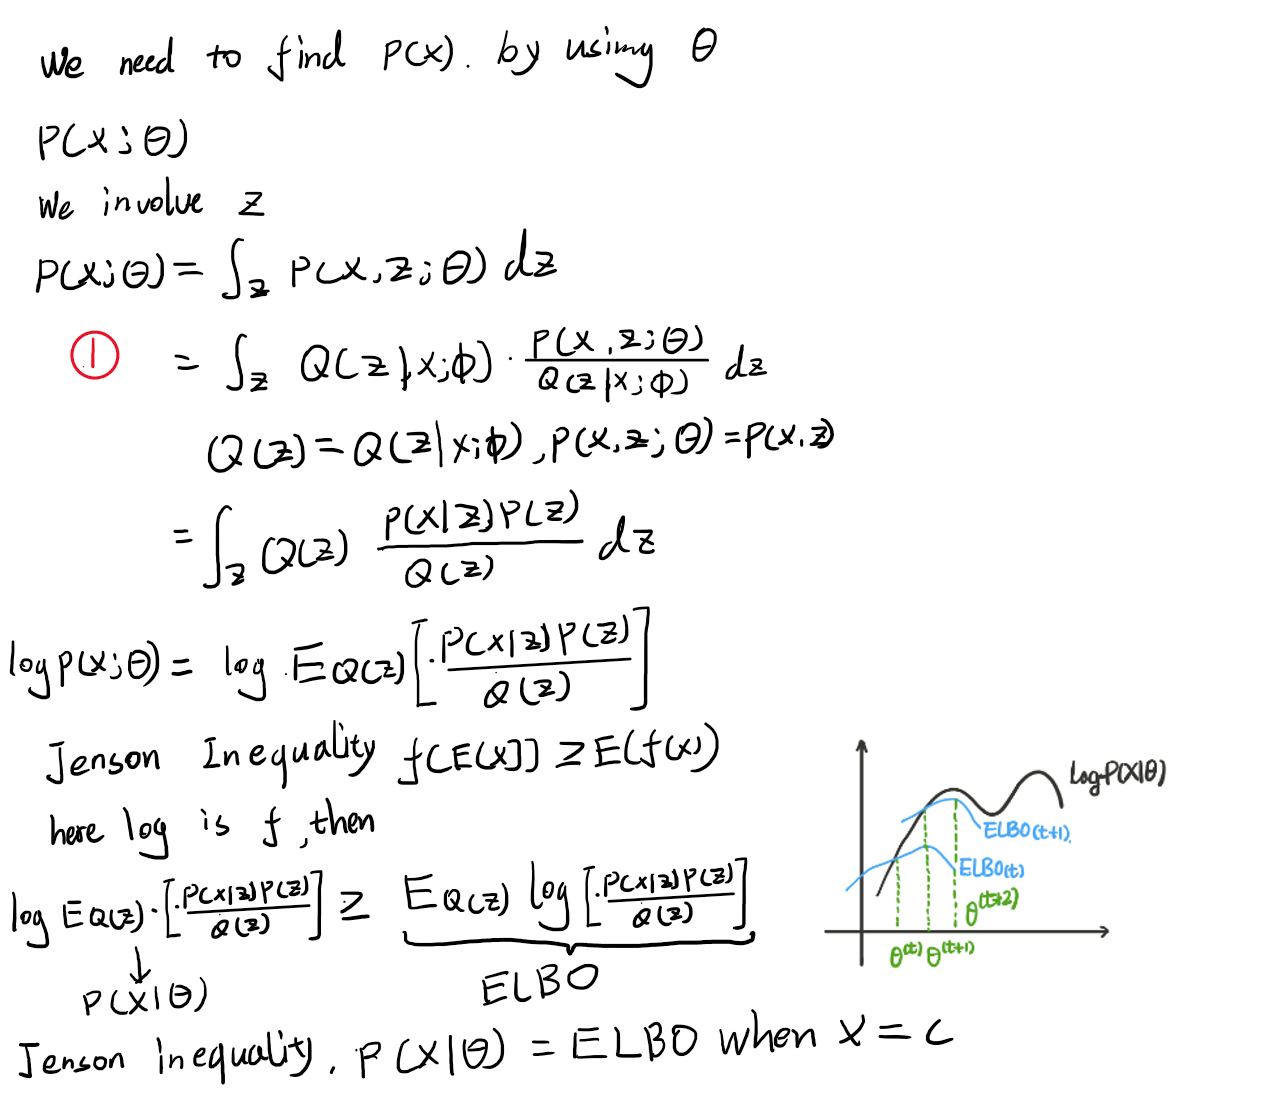 We need to find P(x). by using θ
P(x;θ)
We involve z
P(x;θ) = ∫_z P(x,z;θ) dz
① = ∫_z Q(z|x;ϕ) · P(x,z;θ)/Q(z|x;ϕ) dz
(Q(z)=Q(z|x;ϕ), P(x,z;θ)=P(x.z)
= ∫_z Q(z) P(x|z)P(z)/Q(z) dz
log P(x;θ) = log E_Q(z) [P(x|z)P(z)/Q(z)]
Jenson Inequality f(E(x)] ≥ E(f(x))
here log is f, then
log E_Q(z)·[P(x|z)P(z)/Q(z)] ≥ E_Q(z) log [P(x|z)P(z)/Q(z)]
↓
P(x|θ)
ELBO
Jenson inequality. P(x|θ) = ELBO when x = c
log P(x|θ)
ELBO(t+1)
ELBO(t)
θ^(t+2)
θ^(t) θ^(t+1)